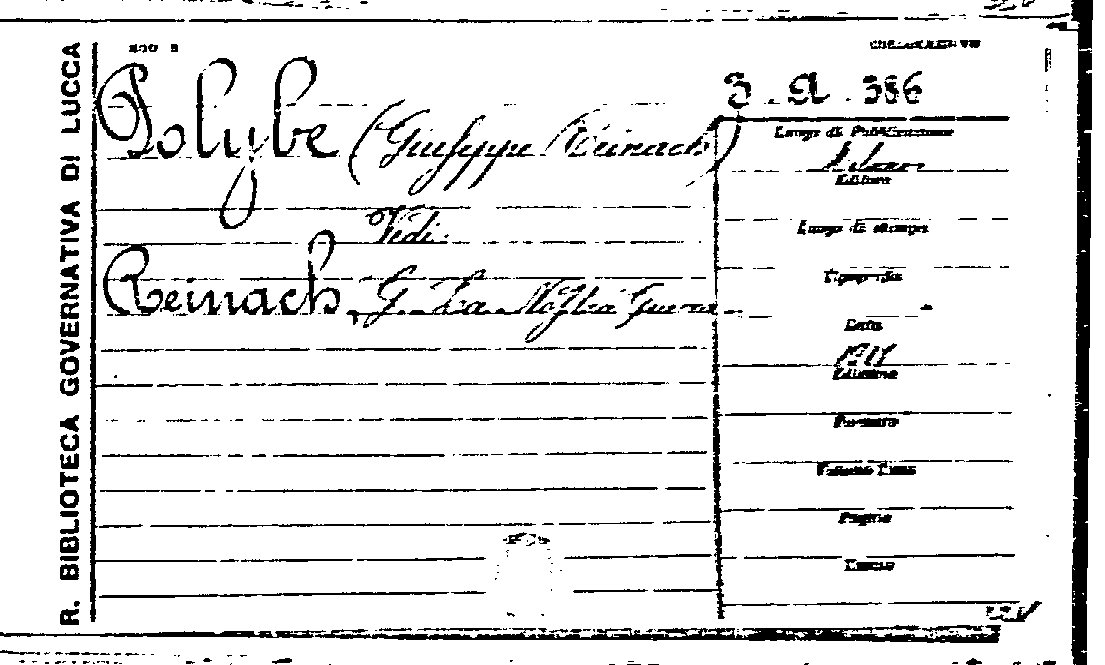 R. BIBLIOTECA GOVERNATIVA DI LUCCA
MOD
3. A. 386
Polybe (Giuseppe Reinach)
Vedi:
Reinach, G. La Nostra Guerra
Luogo di Pubblicazione
Milano
Editore
Luogo di stampa
Tipografia
Data
Edizione
Formato
Volume
Pagine